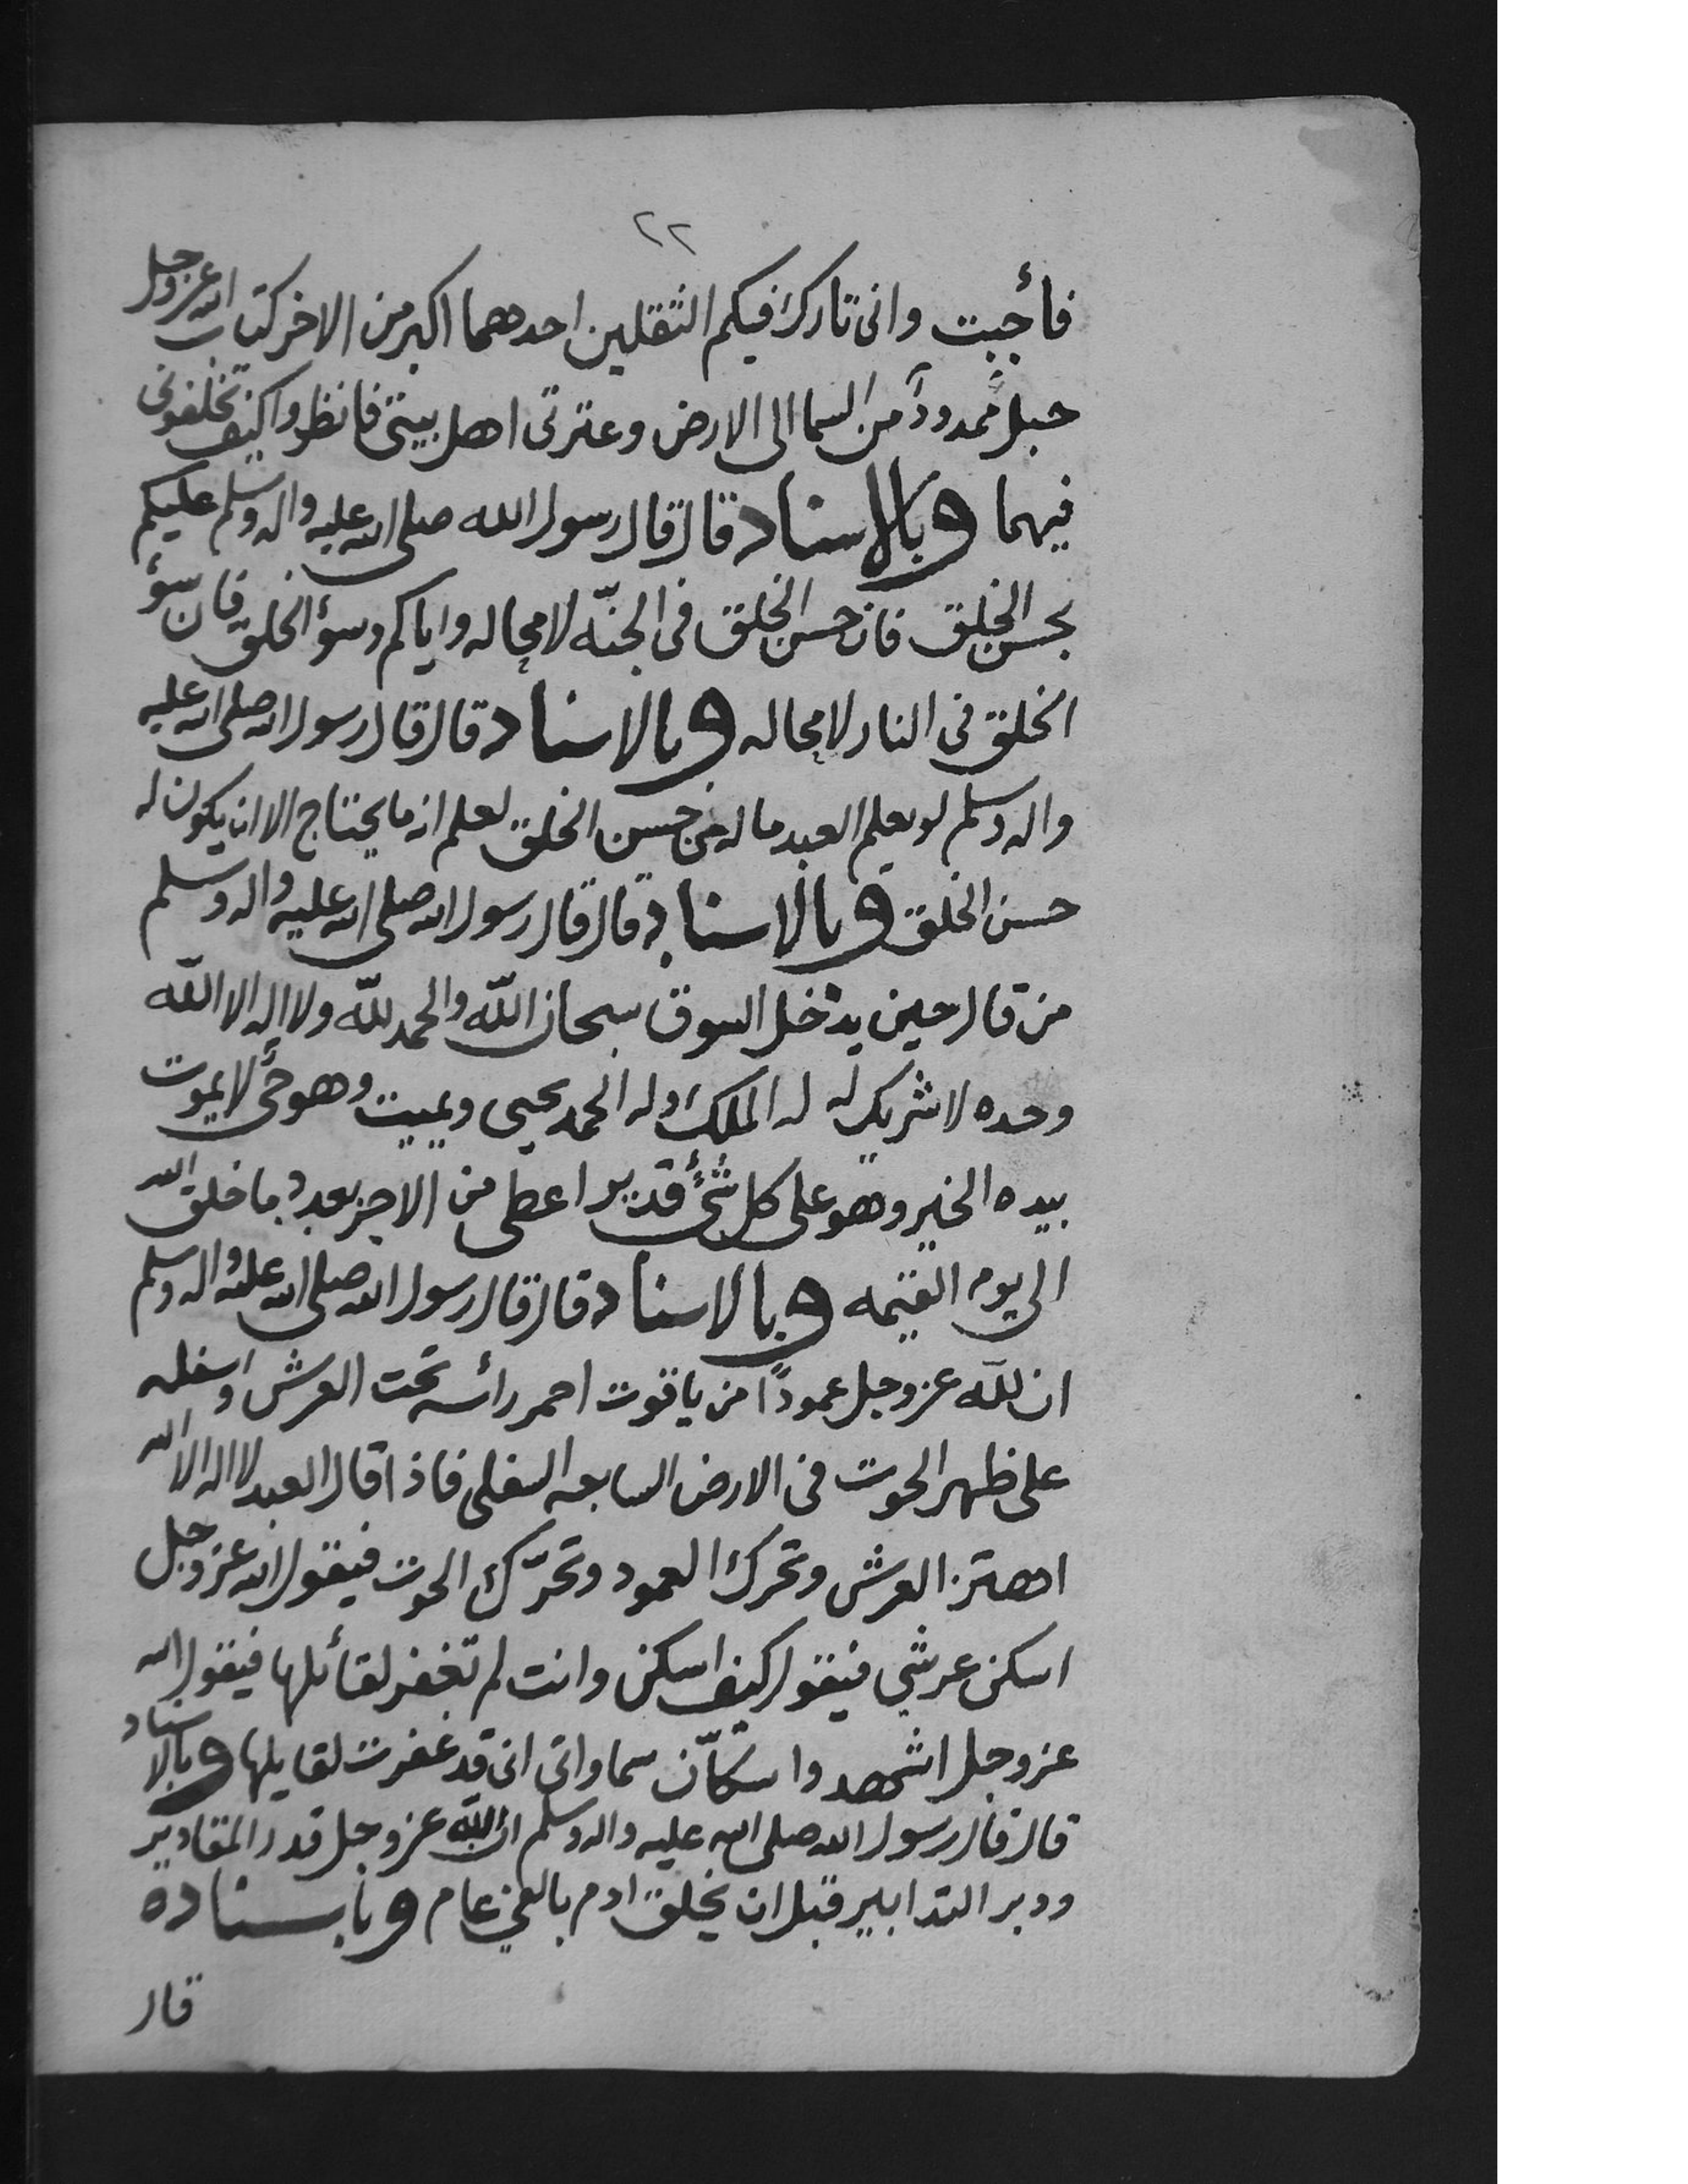 ٢٢
فأجبت وانى تارك فيكم الثقلين احدهما اكبر من الاخر كتاب الله عز وجل
حبل ممدوداً من السما الى الارض وعترتى اهل بيتى فانظروا كيف تخلفونى
فيهما وبالاسناد قال قال رسول الله صلى الله عليه واله وسلم عليكم
بحسن الخلق فان حسن الخلق فى الجنّه لا محاله واياكم وسؤ الخلق فان سؤ
الخلق فى النار لا محاله وبالاسناد قال قال رسول الله صلى الله عليه
واله وسلم لو يعلم العبد ما له فى حسن الخلق لعلم انه ما يحتاج الا ان يكون له
حسن الخلق وبالاسناد قال قال رسول الله صلى الله عليه واله وسلم
من قال حين يدخل السوق سبحان الله والحمد لله ولا اله الا الله
وحده لا شريك له له الملك وله الحمد يحيى ويميت وهو حى لا يموت
بيده الخير وهو على كل شئ قدير اعطى من الاجر بعدد ما خلق الله
الى يوم القيمه وبالاسناد قال قال رسول الله صلى الله عليه واله وسلم
ان لله عز وجل عموداً من ياقوت احمر رأسه تحت العرش واسفله
على ظهر الحوت فى الارض السابعه السفلى فاذا قال العبد لا اله الا الله
اهتز العرش وتحرك العمود وتحرّك الحوت فيقول الله عز وجل
اسكن عرشي فيقول كيف اسكن وانت لم تغفر لقائلها فيقول الله
عز وجل اشهدوا سكّان سماواتى انى قد غفرت لقايلها وبالاسناد
قال قال رسول الله صلى الله عليه واله وسلم ان الله عز وجل قدر المقادير
ودبر التدابير قبل ان يخلق ادم بالفى عام وباسناده
قال